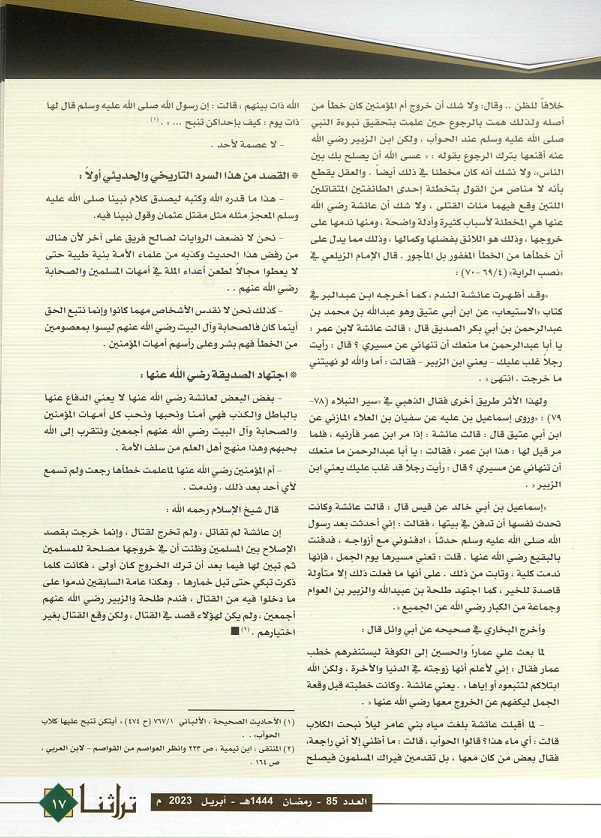 خلافاً للظن .. وقال: ولا شك أن خروج أم المؤمنين كان خطأ من
أصله ولذلك همت بالرجوع حين علمت بتحقيق نبوءة النبي
صلى الله عليه وسلم عند الحوأب ، ولكن ابن الزبير رضي الله
عنه أقنعها بترك الرجوع بقوله : « عسى الله أن يصلح بك بين
الناس»، ولا نشك أنه كان مخطئا في ذلك أيضاً . والعقل يقطع
بأنه لا مناص من القول بتخطئة إحدى الطائفتين المتقاتلين
اللتين وقع فيهما مئات القتلى ، ولا شك أن عائشة رضي الله
عنها هي المخطئة لأسباب كثيرة وأدلة واضحة ، ومنها ندمها على
خروجها ، وذلك هو اللائق بفضلها وكمالها ، وذلك مما يدل على
أن خطأها من الخطأ المغفور بل المأجور . قال الإمام الزيلعي في
«نصب الراية» (٦٩/٤ -٧٠) :
«وقد أظهرت عائشة الندم ، كما أخرجه ابن عبدالبر في
كتاب «الاستيعاب» عن ابن أبي عتيق وهو عبدالله بن محمد بن
عبدالرحمن بن أبي بكر الصديق قال : قالت عائشة لابن عمر :
يا أبا عبدالرحمن ما منعك أن تنهاني عن مسيري ؟ قال : رأيت
رجلاً غلب عليك - يعني ابن الزبير - فقالت : أما والله لو نهيتني
ما خرجت . انتهى » .
ولهذا الأثر طريق أخرى فقال الذهبي في «سير النبلاء (٧٨-
٧٩) : «وروى إسماعيل بن عليه عن سفيان بن العلاء المازني عن
ابن أبي عتيق قال : قالت عائشة : إذا مر ابن عمر فأرنيه ، فلما
مر قيل لها : هذا ابن عمر ، فقالت : يا أبا عبدالرحمن ما منعك
أن تنهاني عن مسيري ؟ قال : رأيت رجلاً قد غلب عليك يعني ابن
الزبير» .
«إسماعيل بن أبي خالد عن قيس قال : قالت عائشة وكانت
تحدث نفسها أن تدفن في بيتها ، فقالت : إني أحدثت بعد رسول
الله صلى الله عليه وسلم حدثاً ، ادفنوني مع أزواجه ، فدفنت
بالبقيع رضي الله عنها . قلت : تعني مسيرها يوم الجمل ، فإنها
ندمت كلية ، وتابت من ذلك . على أنها ما فعلت ذلك إلا متأولة
قاصدة للخير ، كما اجتهد طلحة بن عبيدالله والزبير بن العوام
وجماعة من الكبار رضي الله عن الجميع» .
وأخرج البخاري في صحيحه عن أبي وائل قال :
لما بعث علي عماراً والحسين إلى الكوفة ليستنفرهم خطب
عمار فقال : إني لأعلم أنها زوجته في الدنيا والآخرة ، ولكن الله
ابتلاكم لتتبعوه أو إياها » . يعني عائشة . وكانت خطبته قبل وقعة
الجمل ليكفهم عن الخروج معها رضي الله عنها » .
- لما أقبلت عائشة بلغت مياه بني عامر ليلاً نبحت الكلاب
قالت : أي ماء هذا؟ قالوا الحوأب، قالت : ما أظنني إلا أني راجعة،
فقال بعض من كان معها ، بل تقدمين فيراك المسلمون فيصلح
الله ذات بينهم ، قالت : إن رسول الله صلى الله عليه وسلم قال لها
ذات يوم : كيف بإحداكن تنبح ... » . (١)
- لا عصمة لأحد .
* القصد من هذا السرد التاريخي والحديثي أولاً :
- هذا ما قدره الله وكتبه ليصدق كلام نبينا صلى الله عليه
وسلم المعجز مثله مثل مقتل عثمان وقول نبينا فيه.
- نحن لا نضعف الروايات لصالح فريق على آخر لأن هناك
من رفض هذا الحديث وكذبه من علماء الأمة بنية طيبة حتى
لا يعطوا مجالاً لطعن أعداء الملة في أمهات المسلمين والصحابة
رضي الله عنهم . .
- كذلك نحن لا نقدس الأشخاص مهما كانوا وإنما نتبع الحق
أينما كان فالصحابة وآل البيت رضي الله عنهم ليسوا بمعصومين
من الخطأ فهم بشر وعلى رأسهم أمهات المؤمنين .
* اجتهاد الصديقة رضي الله عنها :
- بغض البعض لعائشة رضي الله عنها لا يعني الدفاع عنها
بالباطل والكذب فهي أمنا ونحبها ونحب كل أمهات المؤمنين
والصحابة وآل البيت رضي الله عنهم أجمعين ونتقرب إلى الله
بحبهم وهذا منهج أهل العلم من سلف الأمة .
- أم المؤمنين رضي الله عنها لماعلمت خطأها رجعت ولم تسمع
لأي أحد بعد ذلك . وندمت .
قال شيخ الإسلام رحمه الله :
إن عائشة لم تقاتل ، ولم تخرج لقتال ، وإنما خرجت بقصد
الإصلاح بين المسلمين وظنت أن في خروجها مصلحة للمسلمين
ثم تبين لها فيما بعد أن ترك الخروج كان أولى ، فكانت كلما
ذكرت تبكي حتى تبل خمارها . وهكذا عامة السابقين ندموا على
ما دخلوا فيه من القتال ، فندم طلحة والزبير رضي الله عنهم
أجمعين ، ولم يكن لهؤلاء قصد في القتال ، ولكن وقع القتال بغير
اختيارهم . (٢)
(١) الأحاديث الصحيحة ، الألباني ٧٦٧/١ (ح ٤٧٤) « أيتكن تنبح عليها كلاب
الحوأب» .
(٢) المنتقى ، ابن تيمية ، ص ٢٢٣ وانظر العواصم من القواصم - لابن العربي ،
ص ١٦٤ .
العدد 85 - رمضان 1444هـ - أبريل 2023 م
تراثنا
١٧